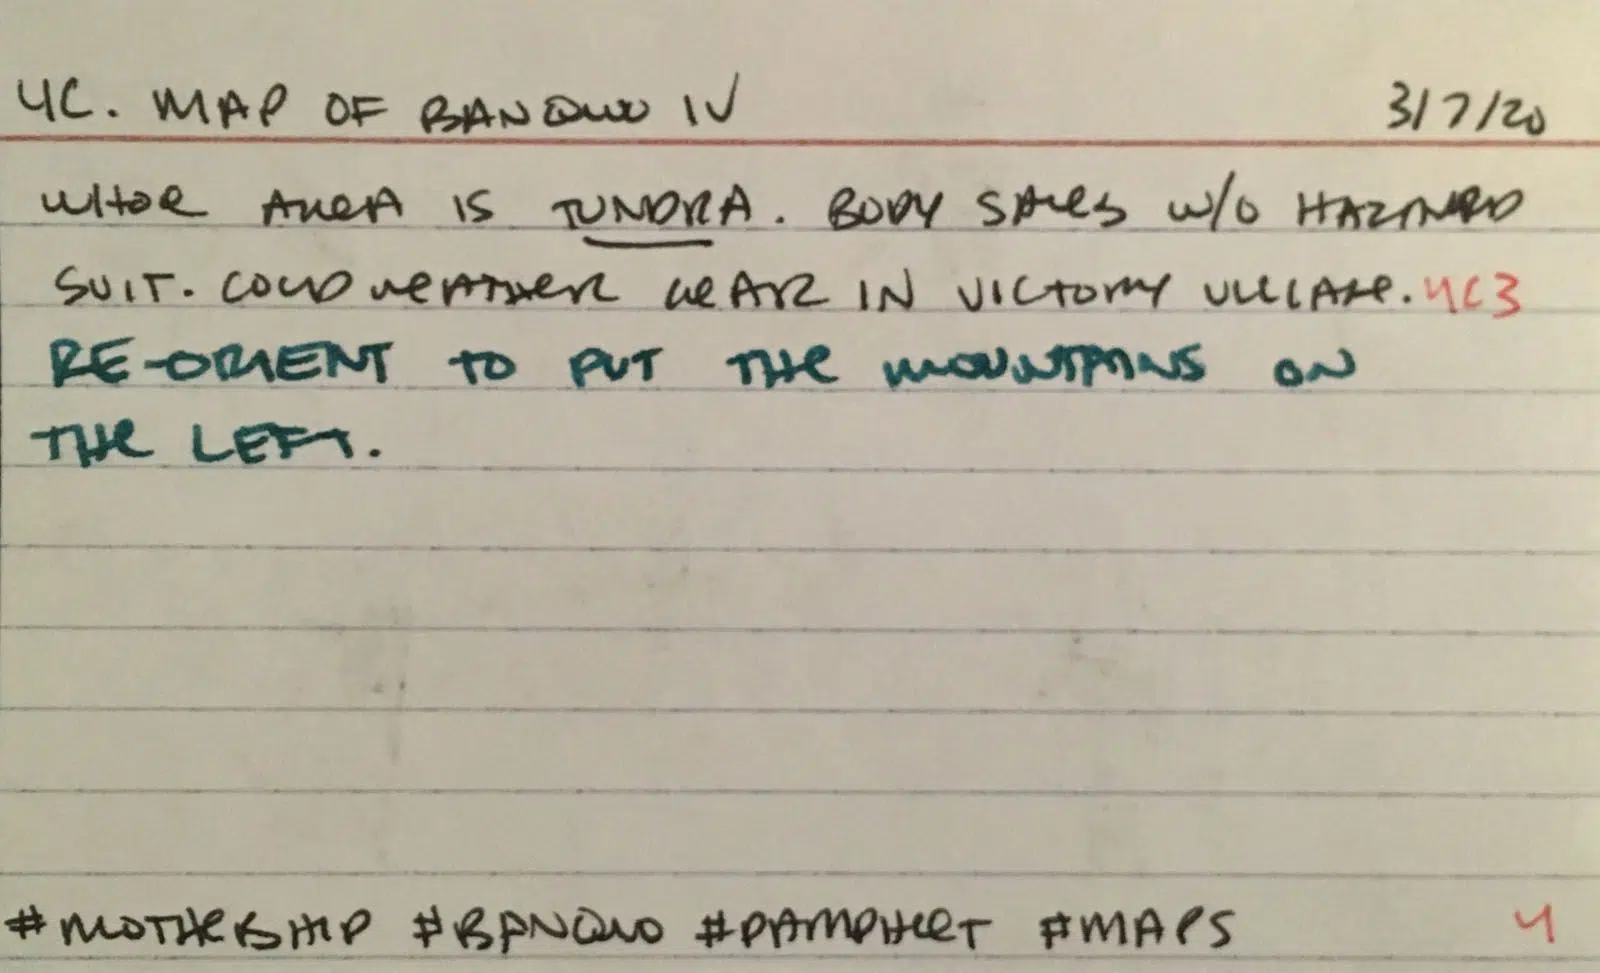 4C. MAP OF BANQUO IV 3/7/20
WHOLE AREA IS TUNDRA. BODY SAVES W/O HAZARD
SUIT. COLD WEATHER GEAR IN VICTORY VILLAGE. 4C3
RE-ORIENT TO PUT THE MOUNTAINS ON
THE LEFT.
#MOTHERSHIP #BANQUO #PAMPHLET #MAPS 4